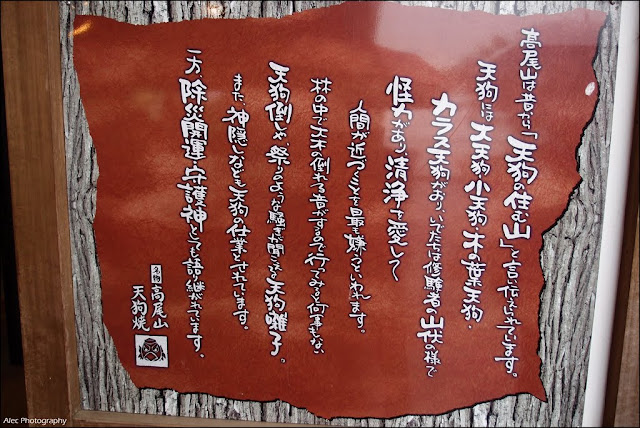 高尾山は昔から「天狗の住む山」と言い伝えられています。
天狗には大天狗・小天狗・木の葉天狗・
カラス天狗がおり、いでたちは修験者の山伏の様で
怪力があり清浄を愛して
人間が近づくことを最も嫌うといわれます。
林の中で大木の倒れる音がするので行ってみると何事もない
天狗倒しや、祭りのような騒ぎが聞こえる天狗囃子。
また神隠しなども天狗の仕業とされています。
一方、除災開運の守護神としても語り継がれています。
名物
高尾山
天狗焼
Alec Photography